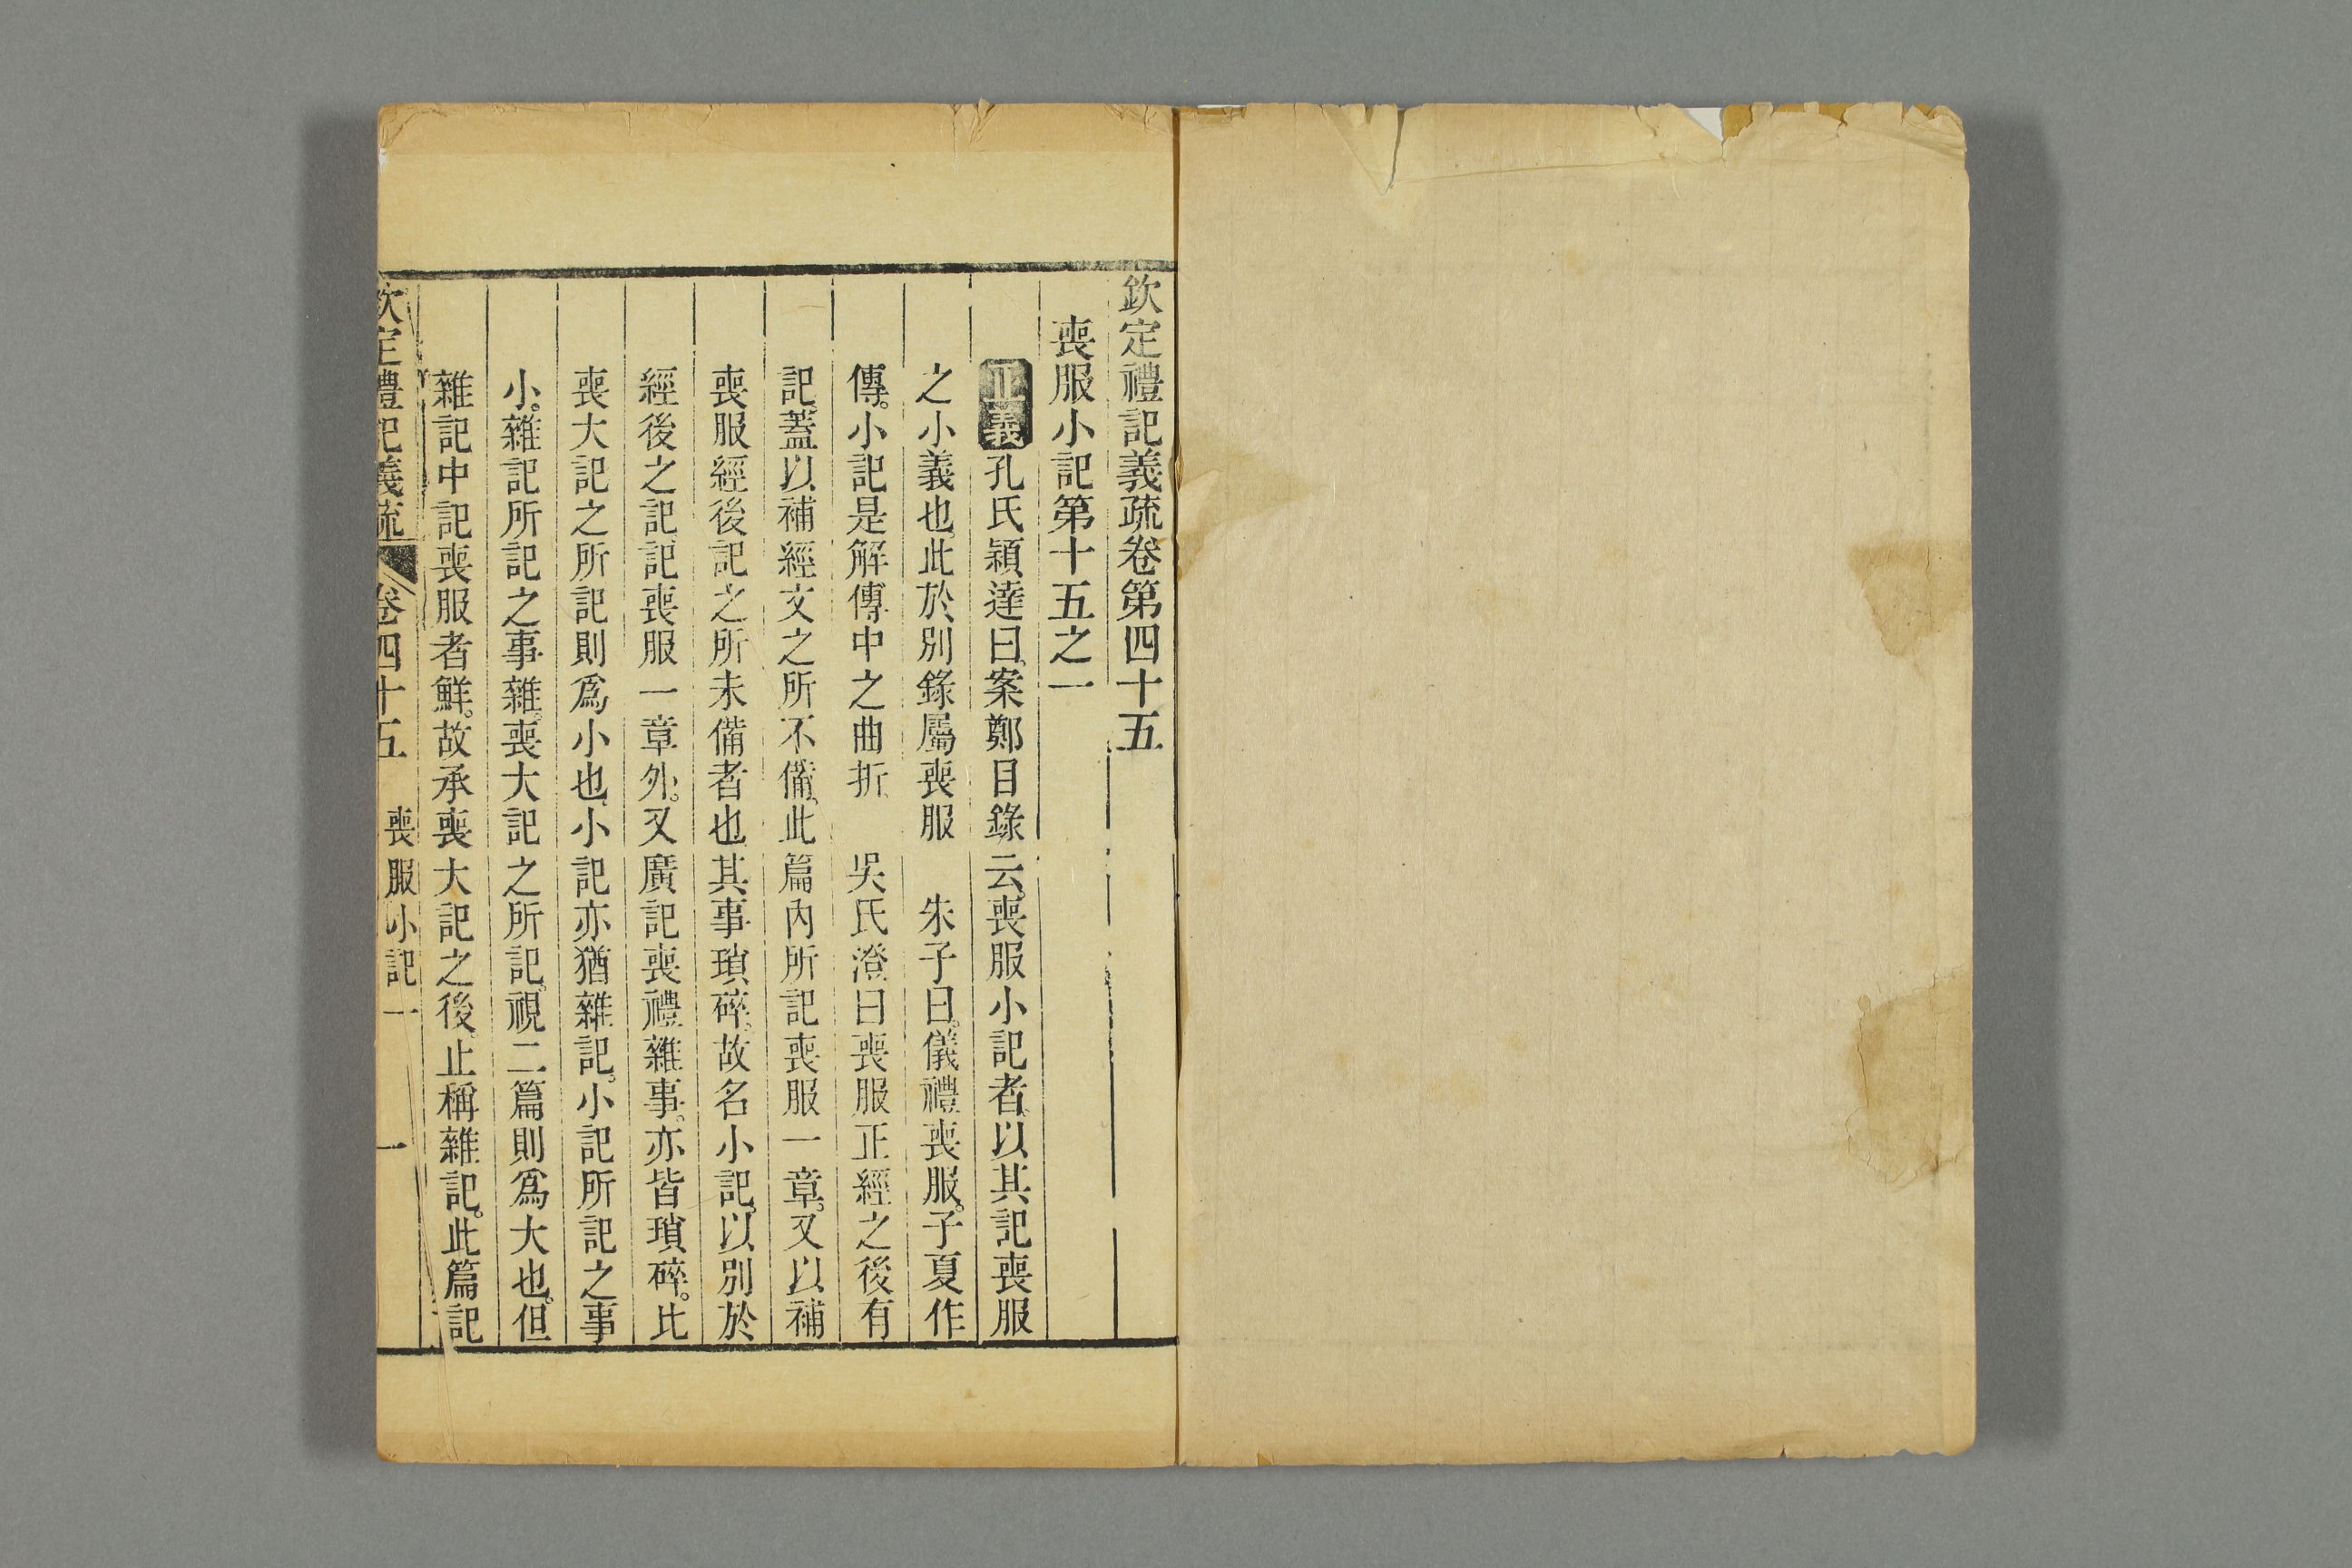 欽定禮記義疏卷第四十五
喪服小記第十五之一
正義孔氏穎達曰。案鄭目錄云。喪服小記者。以其記喪服
之小義也。此於別錄屬喪服　朱子曰。儀禮喪服。子夏作
傳。小記是解傳中之曲折　吳氏澄曰喪服正經之後有
記。蓋以補經文之所不備。此篇內所記喪服一章。又以補
喪服經後記之所未備者也。其事瑣碎。故名小記。以別於
經後之記。記喪服一章外。又廣記喪禮雜事。亦皆瑣碎。比
喪大記之所記則爲小也。小記亦猶雜記。小記所記之事
小。雜記所記之事雜。喪大記之所記。視二篇則爲大也。但
雜記中記喪服者鮮。故承喪大記之後。止稱雜記。此篇記
欽定禮記義疏　卷四十五　喪服小記一　一